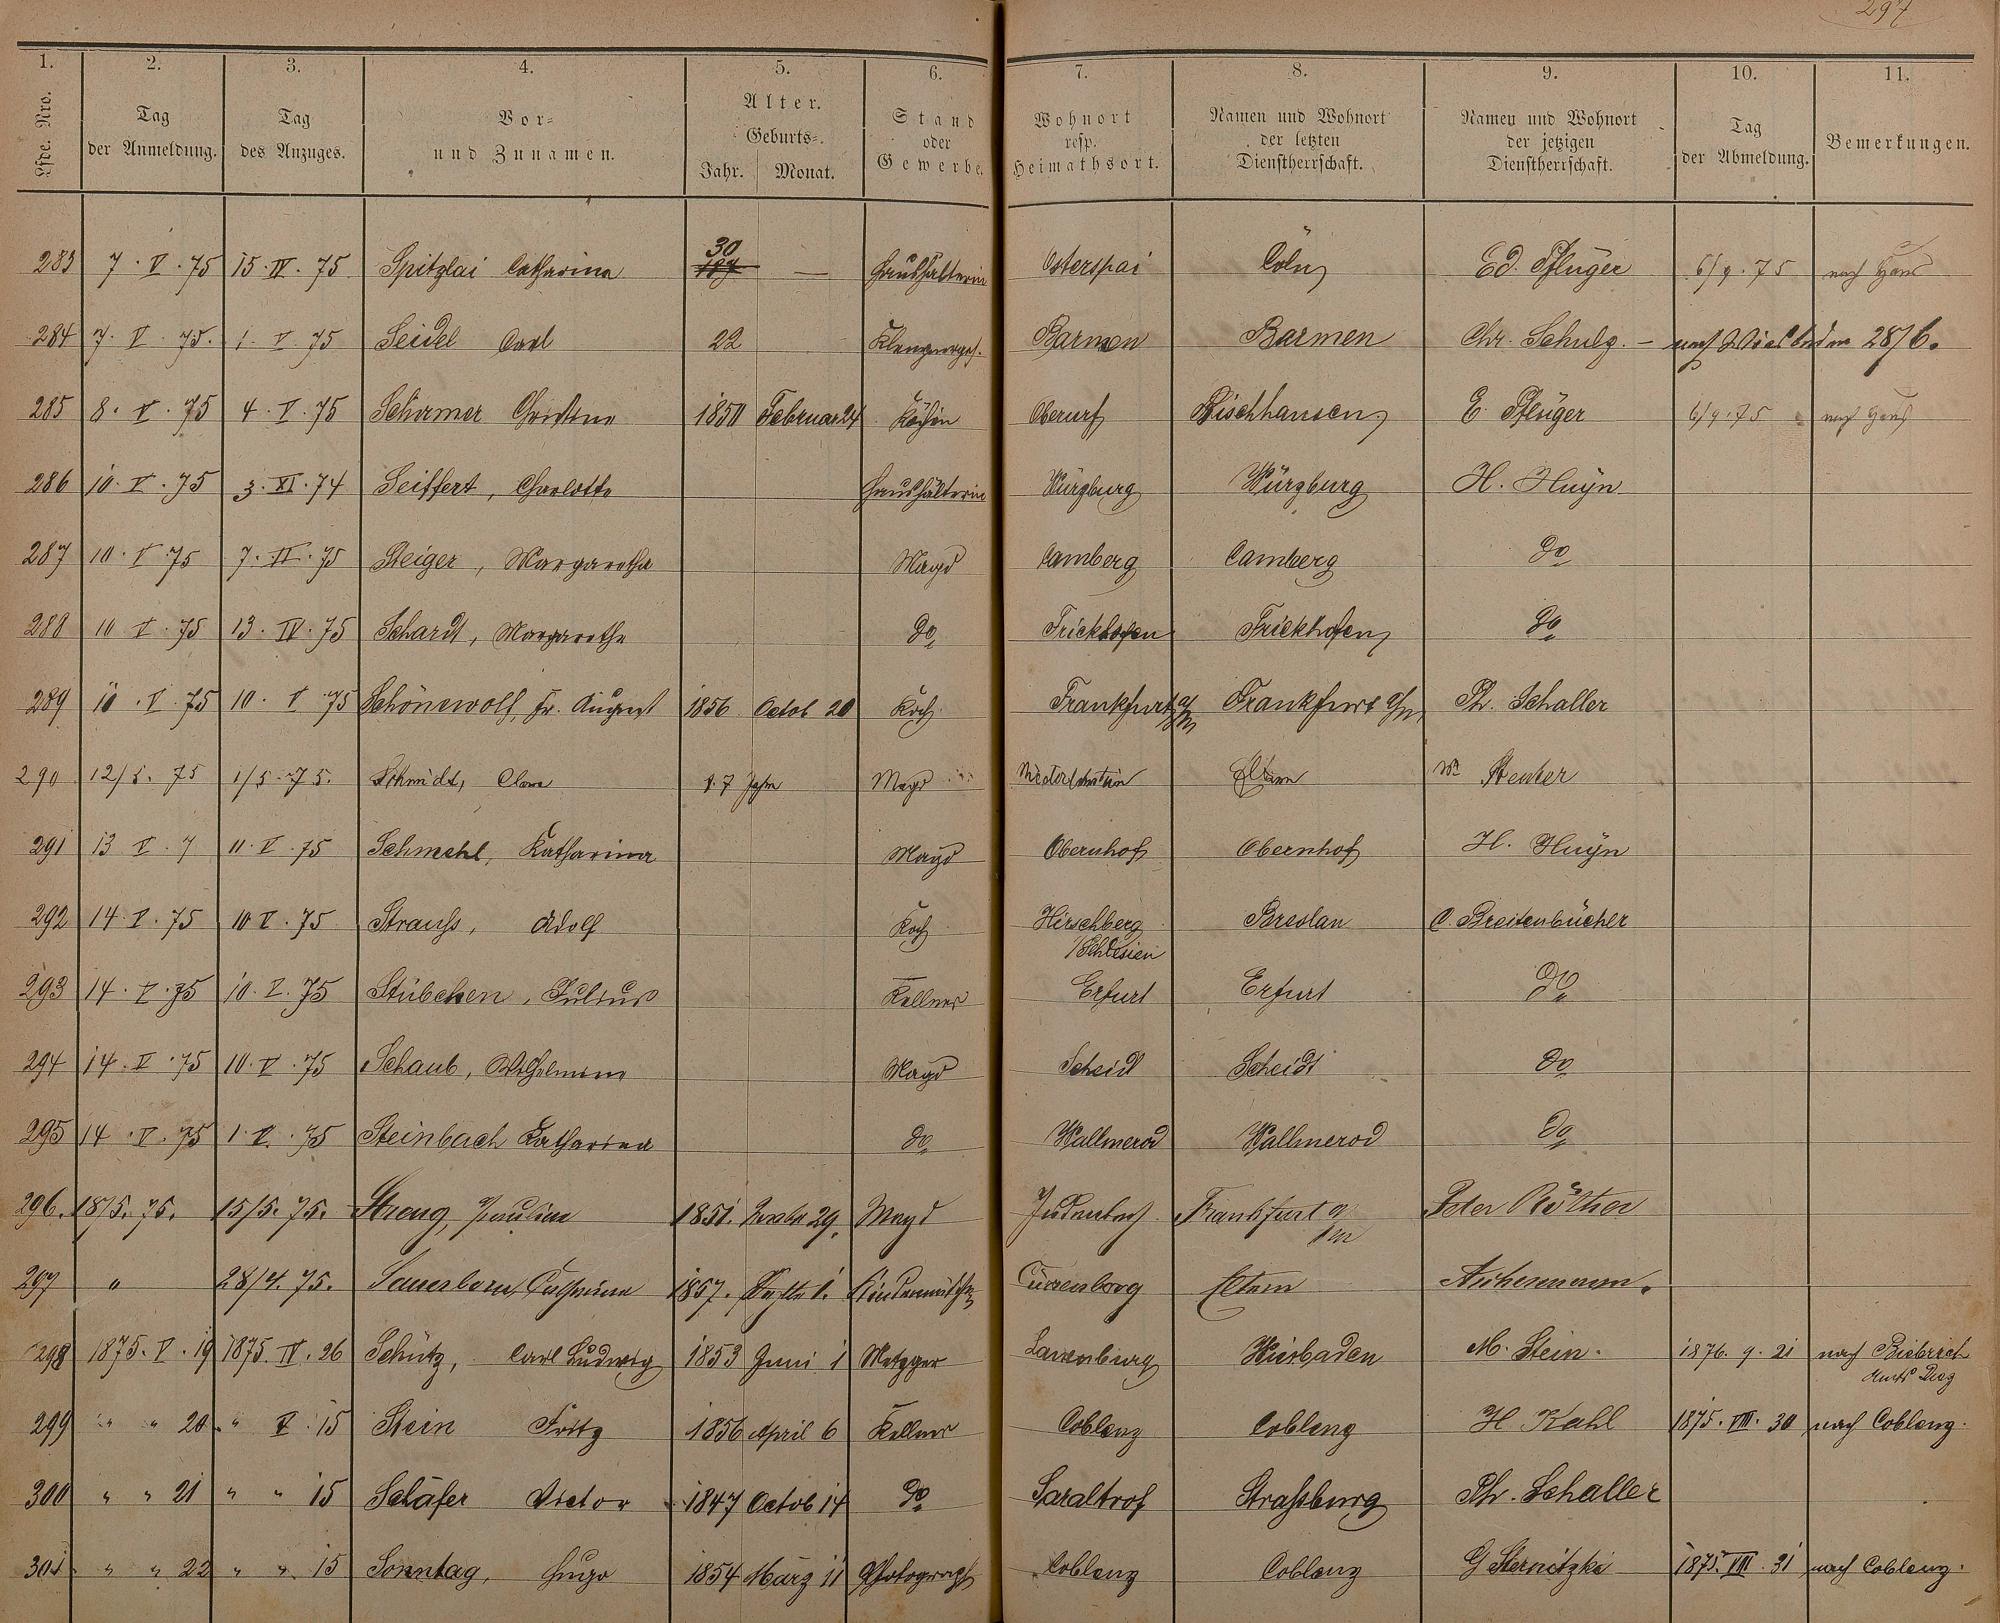 297
1. 2. 3. 4. 5. 6. 7. 8. 9. 10. 11.
Lfde. Nro. Tag der Anmeldung. Tag des Anzuges. Vor- und Zunamen. Alter. Geburts-. Jahr. Monat. Stand oder Gewerbe. Wohnort resp. Heimathsort. Namen und Wohnort der letzten Dienstherrschaft. Namen und Wohnort der jetzigen Dienstherrschaft. Tag der Abmeldung. Bemerkungen.
283 7. V. 75 15. IV. 75 Spitzlai Catharina 30 — Haushälterin Osterspai Cöln Ed. Pflüger 6/9. 75 nach Haus
284 7. V. 75. 1. V. 75 Seidel Carl 22 Barmen Barmen Chr. Schulz. — nach Wiesbaden 28/6.
285 8. V. 75 4. V. 75 Schirmer Christine 1850 Februar 24 Köchin Oberurf Bischhausen E. Pflüger 6/9. 75 nach Haus
286 10. V. 75 3. XI. 74 Seiffert, Charlotte Haushälterin Würzburg Würzburg H. Huyn
287 10. V. 75 7. II. 75 Steiger, Margaretha Magd Camberg Camberg do
288 10 V. 75 13. IV. 75 Schardt, Margarethe do Frickhofen Frickhofen do
289 10. V. 75 10. V. 75 Schönewolf, Fr. August 1856 Octob 20 Koch Frankfurt a/M Frankfurt a/M Ph. Schaller
290 12/5. 75 1/5. 75. Schmidt, Clara 17 Jahre Magd Eltern We Stemler
291 13 V. 7 11. V. 75 Schmehl, Katharina Magd Obernhof Obernhof H. Huyn
292 14. V. 75 10 V. 75 Strauß, Adolf Koch Hirschberg Breslau C. Breitenbücher
/Schlesien
293 14. V. 75 10. V. 75 Stübchen, Julius Kellner Erfurt Erfurt do
294 14. V. 75 10. V. 75 Schaub, Wilhelmine Magd Scheid Scheidt do
295 14. V. 75 1. V. 75 Steinbach Katharina do Wallmerod Wallmerod do
296. 18/5. 75. 15/5. 75. Streng, Pauline 1851. 29. Magd Judenbach Frankfurt a/m Peter Röther
297 " 28/4. 75. Sauerborn, Catharina 1857. 1. Eltern
298 1875. V. 19 1875. IV. 26 Schütz, Carl Ludwig 1853 Juni 1 Metzger Laurenburg Wiesbaden M. Stein. 1876. 9. 21 nach Biebrich
Amts Diez
299 " " 20 " V 15 Stein Fritz 1856 April 6 Kellner Coblenz Coblenz H Kahl 1875. VIII. 30 nach Coblenz.
300 " " 21 " " 15 Schäfer Victor 1847 Octob 14 do Saraltrof Straßburg Ph. Schaller
301 " " 22 " " 15 Sonntag, Hugo 1854 März 11 Photograph Coblenz Coblenz G Sternitzki 1875. VIII. 31 nach Coblenz.